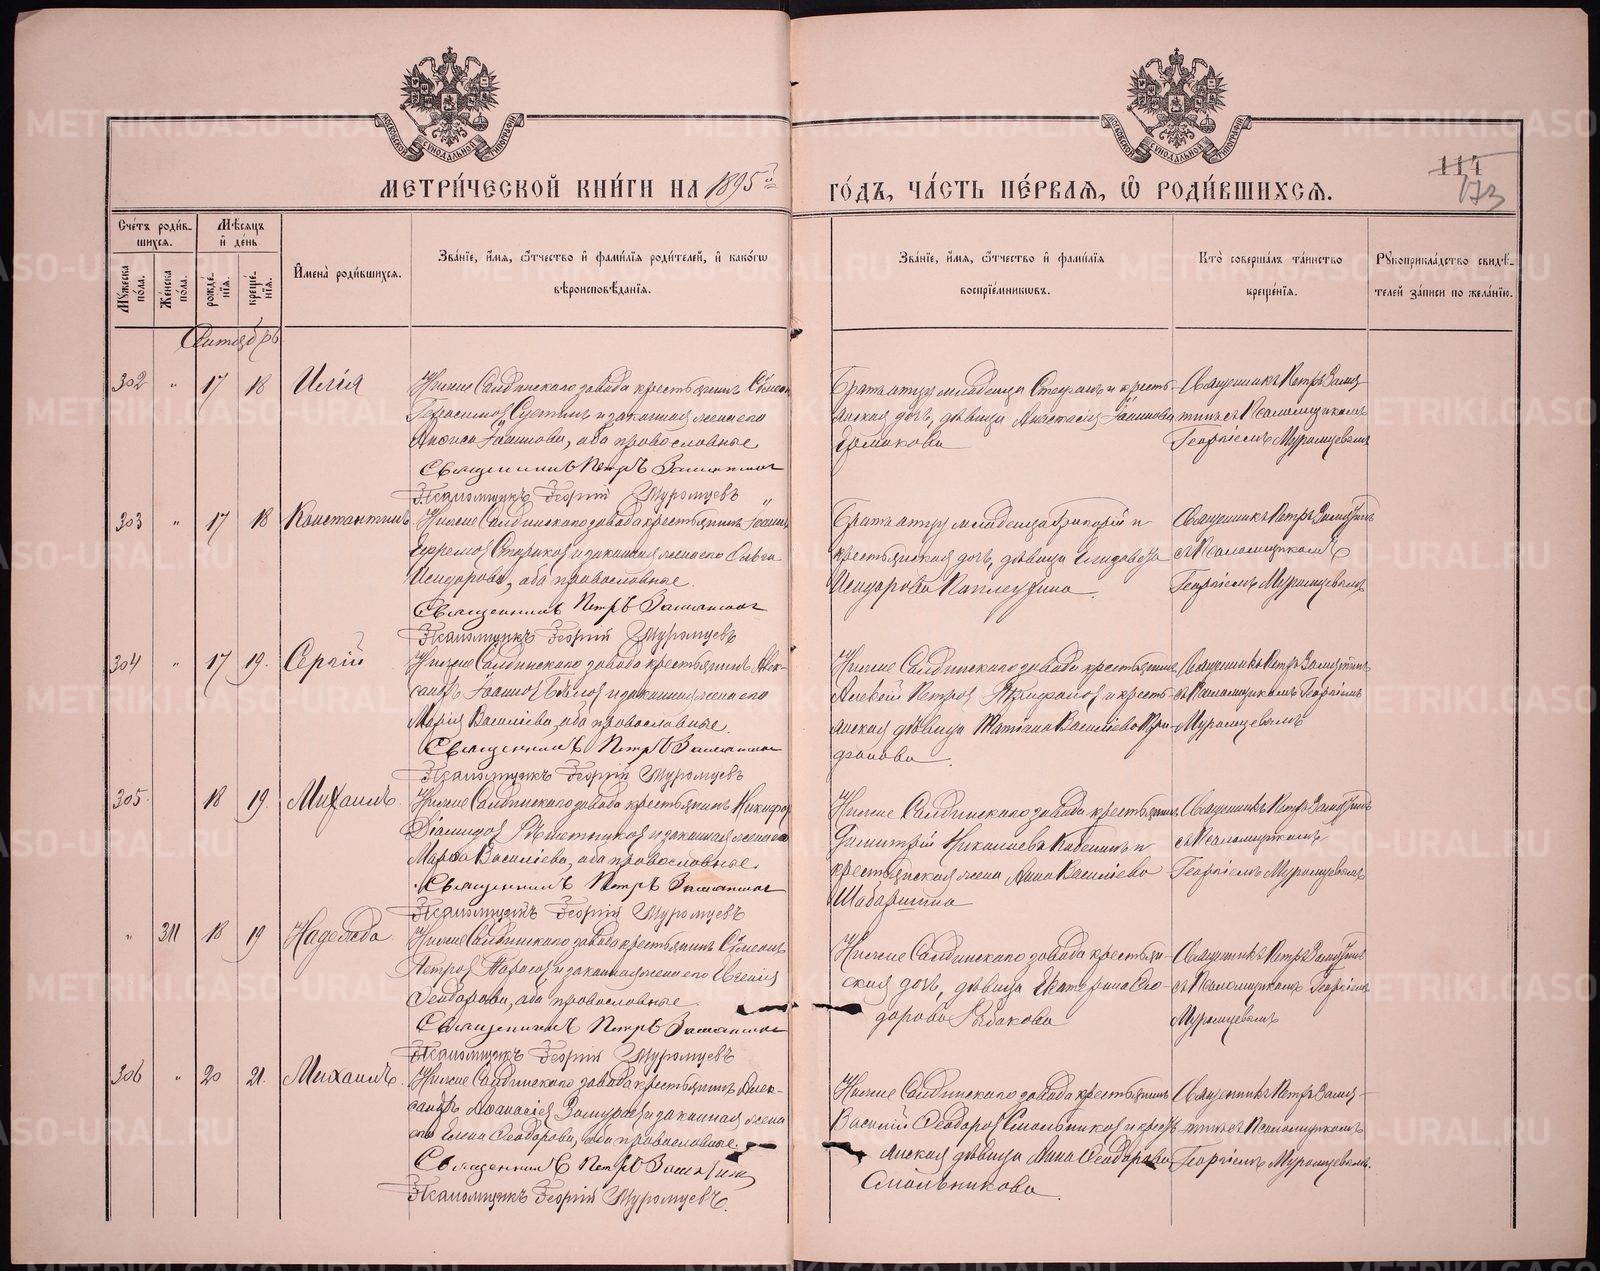 МЕТРИ́ЧЕСКОЙ КНИ́ГИ НА 1895й
ГО́ДЪ, ЧА́СТЬ ПЕ́РВАЯ, Ѡ РОДИ́ВШИХСЯ.
МОСКОВСКОЙ СѴНОДАЛЬНОЙ ТИПОГРАФІИ
МОСКОВСКОЙ СѴНОДАЛЬНОЙ ТИПОГРАФІИ
114
173
Сче́тъ роди́вшихся.
Мѣ́сяцъ и҆ де́нь
Мꙋ́жеска по́ла.
Же́нска по́ла.
рожде́нїя.
креще́нїя.
И҆мена̀ роди́вшихся.
Зва́нїе, и҆́мя, ѻ҆́тчество и҆ фами́лїя роди́телей, и҆ како́гѡ
вѣроисповѣ́данїя.
Зва́нїе, и҆́мя, ѻ҆́тчество и҆ фами́лїя
воспрїе́мникѡвъ.
Кто̀ соверша́лъ та́инство
креще́нїя.
Рꙋкоприкла́дство свидѣ́-
телей за́писи по жела́нїю.
Сентябрь
302 " 17 18 Илія
Нижне Салдинскаго завода крестьянинъ Сѵмеонъ
Герасимовъ Сустинъ и законная жена его
Анфиса Іоаннова, оба православные
Священникъ Петръ Замятинъ
Псаломщикъ Георгій Муромцевъ
Братъ отцу младенца Стефанъ и кресть-
янская дочь, дѣвица Анастасія Іоаннова
Ермакова
Священникъ Петръ Замя-
тинъ съ Псаломщикомъ
Георгіемъ Муромцевымъ
303 " 17 18 Константинъ
Нижне Салдинскаго завода крестьянинъ Іоаннъ
Ефремовъ Стариковъ и законная жена его Ольга
Исидорова, оба православные.
Священникъ Петръ Замятинъ
Псаломщикъ Георгій Муромцевъ
Братъ отцу младенца Григорій и
крестьянская дочь, дѣвица
Исидорова
Священникъ Петръ Замятинъ
съ Псаломщикомъ
Георгіемъ Муромцевымъ
304 " 17 19. Сергій
Нижне Салдинскаго завода крестьянинъ Алек-
сандръ Іоанновъ Бѣловъ и законная жена его
Марія Василіева, оба православные.
Священникъ Петръ Замятинъ
Псаломщикъ Георгій Муромцевъ
Нижне Салдинскаго завода крестьянинъ
Алексѣй Петровъ Трифановъ и кресть-
янская дѣвица Татіана Василіева Три-
фанова.
Священникъ Петръ Замятинъ
съ Псаломщикомъ Георгіемъ
Муромцевымъ
305 18 19. Михаилъ.
Нижне Салдинскаго завода крестьянинъ Никифоръ
Діомидовъ и законная жена его
Марѳа Василіева, оба православные.
Священникъ Петръ Замятинъ
Псаломщикъ Георгій Муромцевъ
Нижне Салдинскаго завода крестьянинъ
Димитрій Николаевъ и
крестьянская жена Анна Василіева
Шабаршина
Священникъ Петръ Замятинъ
съ Псаломщикомъ
Георгіемъ Муромцевымъ
" 311 18 19 Надежда
Нижне Салдинскаго завода крестьянинъ Сѵмеонъ
Петровъ Тарасовъ и законная жена его Евгенія
Ѳеодорова, оба православные
Священникъ Петръ Замятинъ
Псаломщикъ Георгій Муромцевъ
Нижне Салдинскаго завода крестьян-
ская дочь, дѣвица Екатерина Ѳео-
дорова Рыбакова
Священникъ Петръ Замятинъ
съ Псаломщикомъ Георгіемъ
Муромцевымъ
306 " 20 21. Михаилъ.
Нижне Салдинскаго завода крестьянинъ Алек-
сандръ Аѳанасіевъ Замураевъ и законная жена
его Елена Ѳеодорова, оба православные.
Священникъ Петръ Замятинъ
Псаломщикъ Георгій Муромцевъ.
Нижне Салдинскаго завода крестьянинъ
Василій Ѳеодоровъ Смольниковъ и кресть-
янская дѣвица Анна Ѳеодорова
Смольникова.
Священникъ Петръ Замя-
тинъ съ Псаломщикомъ
Георгіемъ Муромцевымъ.
METRIKI.GASO-URAL.RU